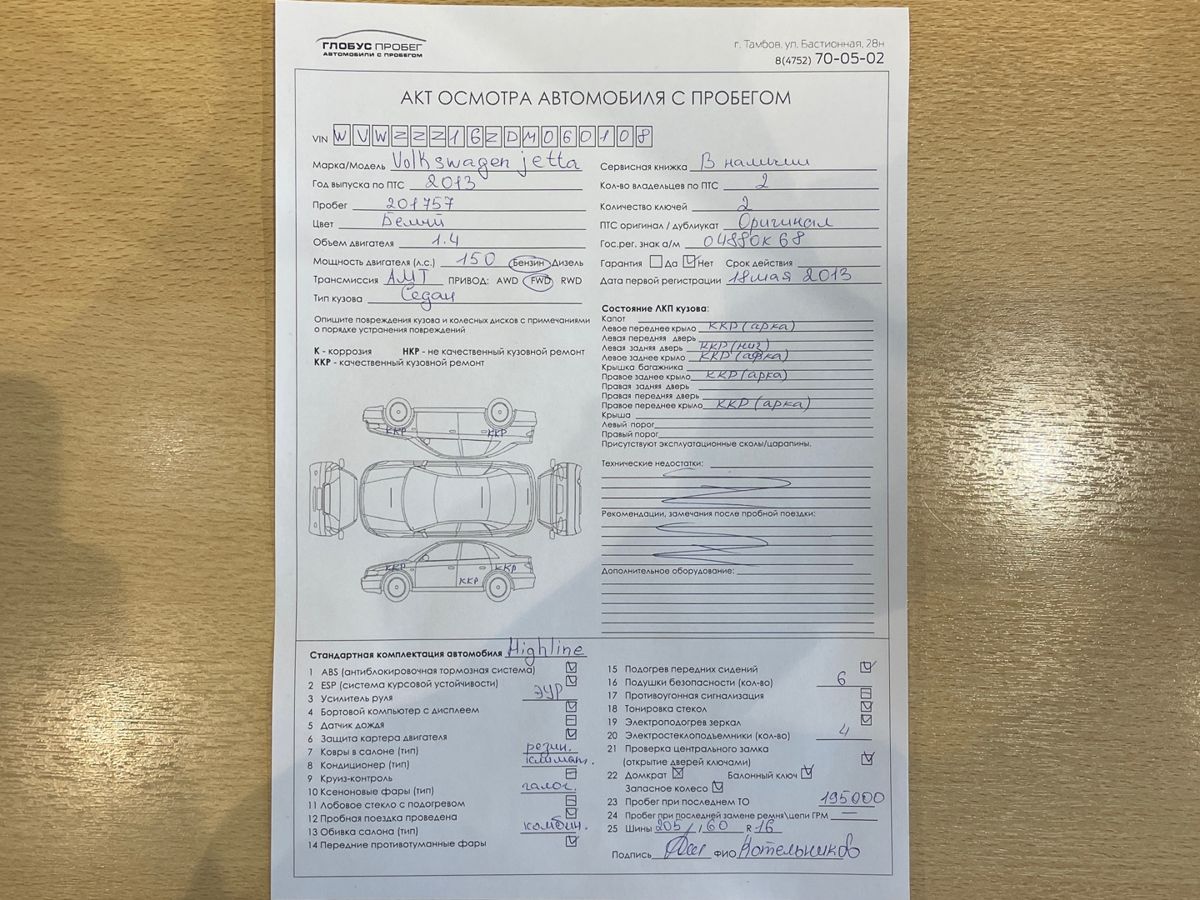 ГЛОБУС ПРОБЕГ
АВТОМОБИЛИ С ПРОБЕГОМ
г. Тамбов, ул. Бастионная, 28н
8(4752) 70-05-02
АКТ ОСМОТРА АВТОМОБИЛЯ С ПРОБЕГОМ
VIN WVWZZZ16ZDM060108
Марка/Модель Volkswagen jetta
Год выпуска по ПТС 2013
Пробег 201757
Цвет Белый
Объем двигателя 1.4
Мощность двигателя (л.с.) 150 Бензин Дизель
Трансмиссия АМТ ПРИВОД: AWD FWD RWD
Тип кузова Седан
Сервисная книжка В наличии
Кол-во владельцев по ПТС 2
Количество ключей 2
ПТС оригинал / дубликат Оригинал
Гос.рег. знак а/м О488ОК 68
Гарантия Да Нет Срок действия
Дата первой регистрации 18 мая 2013
Опишите повреждения кузова и колесных дисков с примечаниями
о порядке устранения повреждений
К - коррозия НКР - не качественный кузовной ремонт
ККР - качественный кузовной ремонт
ККР ККР
ККР ККР ККР
Состояние ЛКП кузова:
Капот
Левое переднее крыло ККР (арка)
Левая передняя дверь
Левая задняя дверь ККР (низ)
Левое заднее крыло ККР (арка)
Крышка багажника
Правое заднее крыло ККР (арка)
Правая задняя дверь
Правая передняя дверь
Правое переднее крыло ККР (арка)
Крыша
Левый порог
Правый порог
Присутствуют эксплуатационные сколы/царапины.
Технические недостатки:
Рекомендации, замечания после пробной поездки:
Дополнительное оборудование:
Стандартная комплектация автомобиля Highline
1 ABS (антиблокировочная тормозная система)
2 ESP (система курсовой устойчивости)
3 Усилитель руля ЭУР
4 Бортовой компьютер с дисплеем
5 Датчик дождя
6 Защита картера двигателя
7 Ковры в салоне (тип) резин.
8 Кондиционер (тип) климат.
9 Круиз-контроль
10 Ксеноновые фары (тип) галог.
11 Лобовое стекло с подогревом
12 Пробная поездка проведена
13 Обивка салона (тип) комбин.
14 Передние противотуманные фары
15 Подогрев передних сидений
16 Подушки безопасности (кол-во) 6
17 Противоугонная сигнализация
18 Тонировка стекол
19 Электроподогрев зеркал
20 Электростеклоподъемники (кол-во) 4
21 Проверка центрального замка
(открытие дверей ключами)
22 Домкрат Балонный ключ
Запасное колесо
23 Пробег при последнем ТО 195000
24 Пробег при последней замене ремня\цепи ГРМ —
25 Шины 205 / 60 R 16
Подпись ФИО Котельников